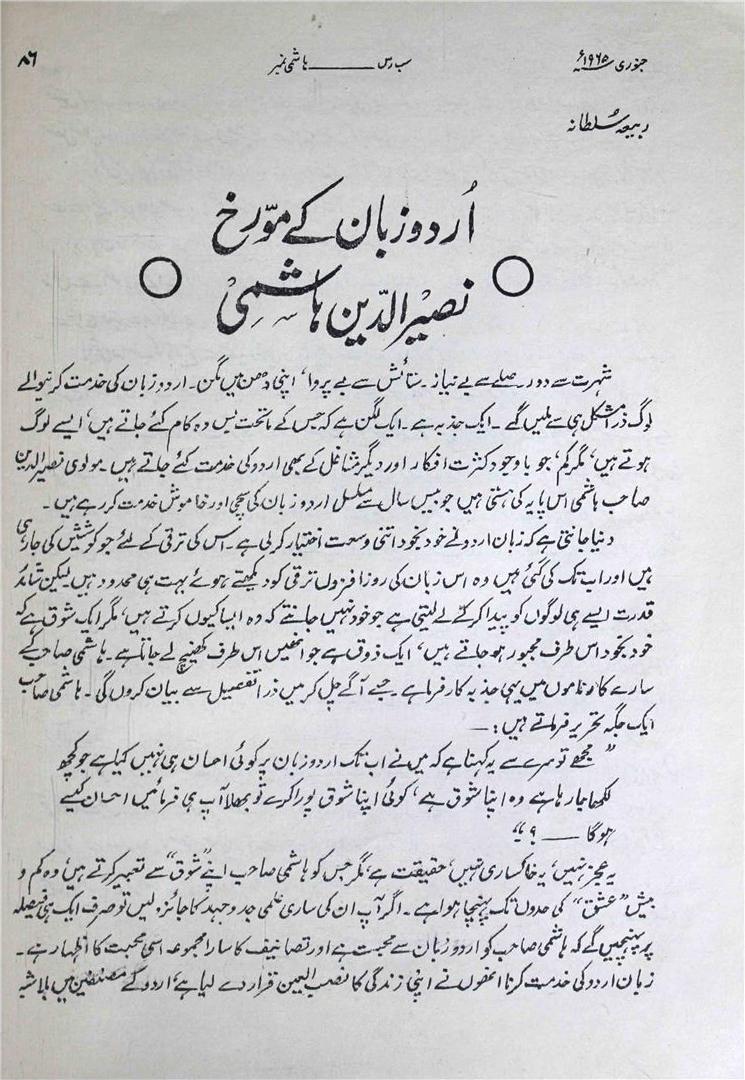 جنوری ۱۹۶۵ء سب رس ــــــ ہاشمی نمبر ۸۶
ربیعہ سُلطانہ
اُردو زبان کے مورّخ
نصیر الدّین ہاشمی
شہرت سے دور۔ صلے سے بے نیاز۔ ستائش سے بے پروا، اپنی دھن میں مگن۔ اردو زبان کی خدمت کرنیوالے
لوگ ذرا مشکل ہی سے ملیں گے۔ ایک جذبہ ہے۔ ایک لگن ہے کہ جس کے ماتحت بس وہ کام کئے جاتے ہیں، ایسے لوگ
ہوتے ہیں، مگر کم، جو باوجود کثرت افکار اور دیگر مشاغل کے بھی اردو کی خدمت کئے جاتے ہیں۔ مولوی نصیر الدین
صاحب ہاشمی اس پایہ کی ہستی ہیں جو بیس سال سے مسلسل اردو زبان کی سچی اور خاموش خدمت کر رہے ہیں۔
دنیا جانتی ہے کہ زبان اردو نے خود بخود اتنی وسعت اختیار کرلی ہے۔ اس کی ترقی کے لئے جو کوششیں کی جارہی
ہیں اور اب تک کی گئی ہیں وہ اس زبان کی روز افزوں ترقی کو دیکھتے ہوئے بہت ہی محدود ہیں لیکن شائد
قدرت ایسے ہی لوگوں کو پیدا کر کے لے لیتی ہے جو خود نہیں جانتے کہ وہ ایسا کیوں کرتے ہیں، مگر ایک شوق ہے کہ
خود بخود اس طرف مجبور ہو جاتے ہیں، ایک ذوق ہے جو انھیں اس طرف کھینچ لے جاتا ہے۔ ہاشمی صاحب کے
سارے کارناموں میں یہی جذبہ کارفرما ہے۔ جسے آگے چل کر میں ذرا تفصیل سے بیان کروں گی۔ ہاشمی صاحب
ایک جگہ تحریر فرماتے ہیں :۔
" مجھے تو سرے سے یہ کہنا ہے کہ میں نے اب تک اردو زبان پر کوئی احسان ہی نہیں کیا ہے جو کچھ
لکھا جا رہا ہے وہ اپنا شوق ہے، کوئی اپنا شوق پورا کرے تو بھلا آپ ہی فرمائیں احسان کیسے
ہوگا ــــ ؟ "
یہ عجز نہیں، یہ خاکساری نہیں، حقیقت ہے، مگر جس کو ہاشمی صاحب اپنے "شوق" سے تعبیر کرتے ہیں، وہ کم و
بیش "عشق" کی حدوں تک پہنچا ہوا ہے۔ اگر آپ ان کی ساری علمی جدوجہد کا جائزہ لیں تو صرف ایک ہی فیصلہ
پر پہنچیں گے کہ ہاشمی صاحب کو اردو زبان سے محبت ہے اور تصانیف کا سارا مجموعہ اسی محبت کا اظہار ہے۔
زبان اردو کی خدمت کرنا انھوں نے اپنی زندگی کا نصب العین قرار دے لیا ہے، اردو کے مصنفین میں بلا شبہ